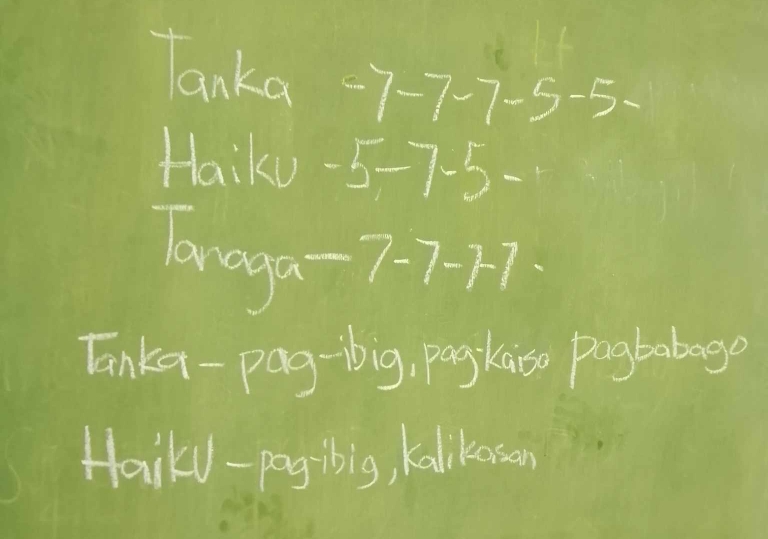 Tanka -7-7-7-5-5-
Haiku -5-7-5-
Tanaga - 7-7-7-7-
Tanka - pag-ibig, pag-kaisa pagbabago
Haiku - pag-ibig, kalikasan